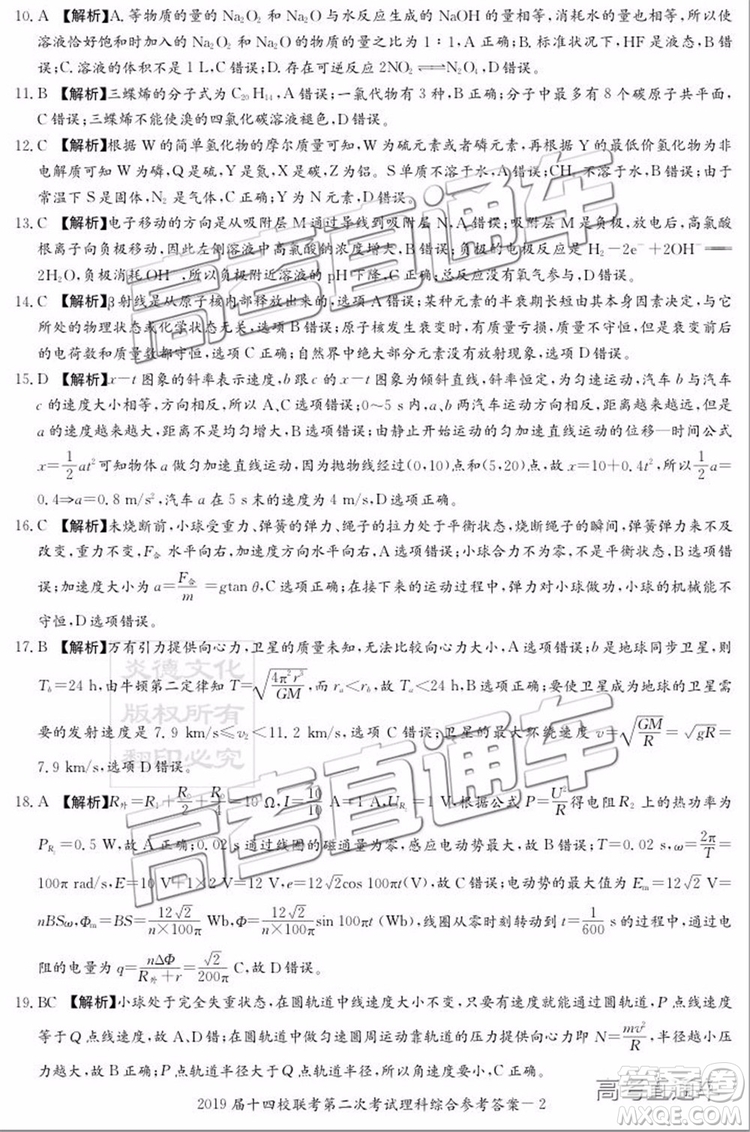 10. A 【解析】A. 等物质的量的 Na₂O₂ 和 Na₂O 与水反应生成的 NaOH 的物质的量相等，消耗水的量也相等，所以使
溶液恰好饱和时加入的 Na₂O₂ 和 Na₂O 的物质的量之比为 1∶1，A 正确；B. 标准状况下，HF 是液态，B 错
误；C. 溶液的体积不是 1 L，C 错误；D. 存在可逆反应 2NO₂⇌N₂O₄，D 错误。
11. B 【解析】三蝶烯的分子式为 C₂₀H₁₄，A 错误；一氯代物有 3 种，B 正确；分子中最多 8 个碳原子共平面，C
错误；三蝶烯不能使溴的四氯化碳溶液褪色，D 错误。
12. C 【解析】根据 W 的简单氢化物的摩尔质量可知，W 为硫元素或氯元素，再根据 X 的最低价氢化物为非
电解质可知 W 为磷，Q 为硅，Y 是氮，X 是碳，Z 为铝。S 单质不溶于水，A 错误；CH₄ 不溶于水，B 错误；由于
常温下 S 是固体，N₂ 是气体，C 正确；Y 为 N 元素，D 错误。
13. C 【解析】电子移动的方向是从吸附层 M 通过导线到吸附层 N，A 错误；吸附层 M 是负极，高氯酸
根离子向负极移动，因此左侧溶液中高氯酸钠浓度增大，B 错误；负极的电极反应是 H₂−2e⁻+2OH⁻══
2H₂O，负极消耗 OH⁻，所以负极溶液的 pH 下降，C 正确；反应没有氧气参与，D 错误。
14. C 【解析】β 射线是从原子核内部释放出来的，选项 A 错误；某种元素的半衰期长短由其本身因素决定，与
它所处的物理状态或化学状态无关，选项 B 错误；原子核发生衰变时，有质量亏损，质量不守恒，但衰变前后
的电荷数和质量数都守恒，选项 C 正确；自然界中绝大部分元素没有放射现象，选项 D 错误。
15. D 【解析】x−t 图象的斜率表示速度，b 跟 c 的 x−t 图象为倾斜直线，斜率恒定，为匀速运动，汽车 b 与汽车
c 的速度大小相等，方向相反，所以 A、C 选项错误；0～5 s 内，a、b 两汽车运动方向相同，距离越来越远，但是
a 的速度越来越大，距离不是均匀增大，B 选项错误；由静止开始运动的匀加速直线运动的位移—时间公式
x=½at² 可知物体 a 做匀加速直线运动，因为抛物线经过(0,10)点和(5,20)点，故 x=10+0.4t²，所以 ½a=
0.4⇒a=0.8 m/s²，汽车 a 在 5 s 末的速度为 4 m/s，D 选项正确。
16. C 【解析】未烧断前，小球受重力、弹簧的弹力、绳子的拉力处于平衡状态，烧断绳子的瞬间，弹簧弹力来不及
改变，重力不变，F合 水平向右，大小不为零，故 A、B 选项错误；小球合力不为零，不是平衡状态，故 B 选项错
误；加速度大小为 a=F合/m=gtan θ，C 选项正确；在接下来的运动过程中，弹力对小球做功，小球的机械能不
守恒，D 选项错误。
17. B 【解析】万有引力提供向心力，卫星的质量未知，无法比较向心力大小，A 选项错误；b 是地球同步卫星，则
T_b=24 h，由牛顿第二定律知 T=√(4π²r³/GM)，而 r_a<r_b，所以 T_a<T_b，B 选项正确；要使卫星成为地球的卫星需
要的发射速度是 7.9 km/s≤v₂<11.2 km/s，选项 C 错误；卫星的最大环绕速度 v=√(GM/R)=√(gR)=
7.9 km/s，选项 D 错误。
18. A 【解析】R外=R₁+R₂/2+R₃/4=10 Ω，I=10/10 A=1 A，U_R=1 V，根据公式 P=U²/R 可得电阻 R₂ 上的热功率为
P_R=0.5 W，故 A 正确；0.02 s 通过线圈的磁通量为零，感应电动势最大，故 B 错误；T=0.02 s，ω=2π/T=
100π rad/s，E=10 V+1×2 V=12 V，e=12√2cos 100πt(V)，故 C 错误；电动势的最大值为 E_m=12√2 V=
nBSω，Φ_m=BS=12√2/(n×100π) Wb，Φ=12√2/(n×100π) sin 100πt (Wb)，线圈从零时刻开始转动到 t=1/600 s 的过程中，通过电
阻的电量为 q=nΔΦ/(R外+r)=√2/(200π) C，故 D 错误。
19. BC 【解析】小球处于完全失重状态，在圆轨道中线速度大小不变，只要有初速度就能做圆周运动，P 点线速度
等于 Q 点线速度，故 A、D 错；在圆轨道中做匀速圆周运动靠轨道的压力提供向心力即 N=mv²/R，半径越小压
力越大，故 P 点压力小于 Q 点压力，故 B、C 正确。
2019 届十四校联考第二次考试理科综合参考答案—2
炎德文化
版权所有
翻印必究
高考直通车
高考直通车